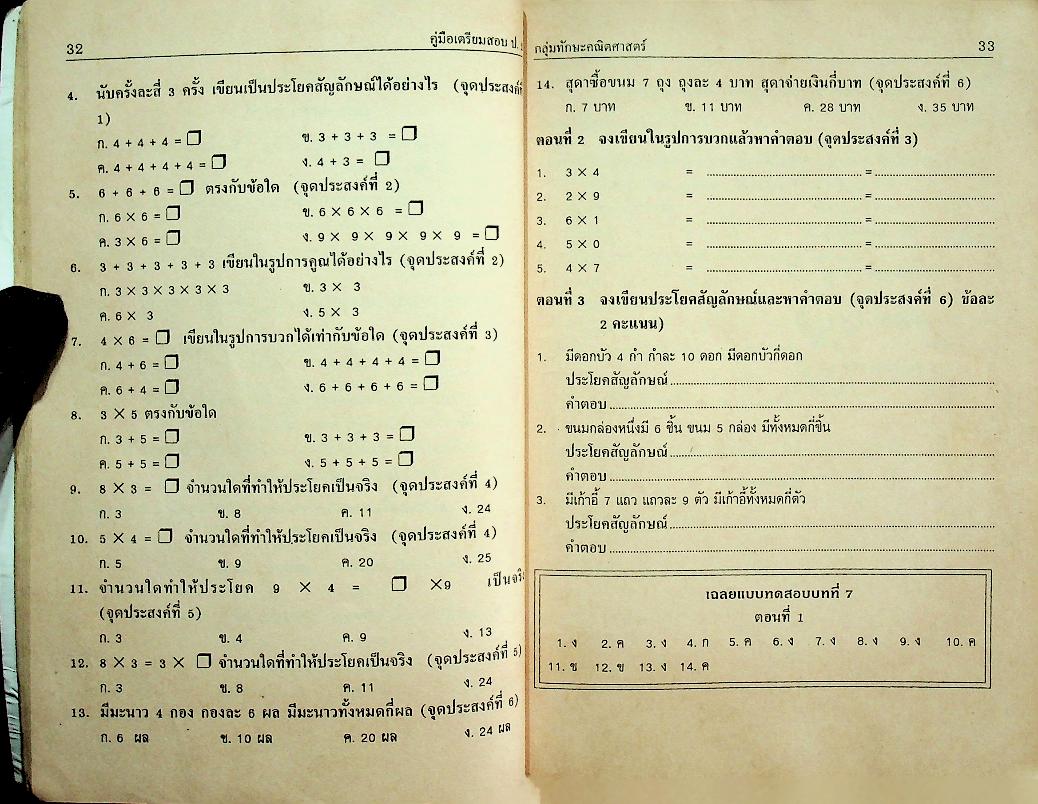 32
คู่มือเตรียมสอบ ป.
4. นับครั้งละสี่ 3 ครั้ง เขียนเป็นประโยคสัญลักษณ์ได้อย่างไร (จุดประสงค์ที่
1)
ก. 4 + 4 + 4 = □ ข. 3 + 3 + 3 = □
ค. 4 + 4 + 4 + 4 = □ ง. 4 + 3 = □
5. 6 + 6 + 6 = □ ตรงกับข้อใด (จุดประสงค์ที่ 2)
ก. 6 × 6 = □ ข. 6 × 6 × 6 = □
ค. 3 × 6 = □ ง. 9 × 9 × 9 × 9 × 9 = □
6. 3 + 3 + 3 + 3 + 3 เขียนในรูปการคูณได้อย่างไร (จุดประสงค์ที่ 2)
ก. 3 × 3 × 3 × 3 × 3 ข. 3 × 3
ค. 6 × 3 ง. 5 × 3
7. 4 × 6 = □ เขียนในรูปการบวกได้เท่ากับข้อใด (จุดประสงค์ที่ 3)
ก. 4 + 6 = □ ข. 4 + 4 + 4 + 4 = □
ค. 6 + 4 = □ ง. 6 + 6 + 6 + 6 = □
8. 3 × 5 ตรงกับข้อใด
ก. 3 + 5 = □ ข. 3 + 3 + 3 = □
ค. 5 + 5 = □ ง. 5 + 5 + 5 = □
9. 8 × 3 = □ จำนวนใดที่ทำให้ประโยคเป็นจริง (จุดประสงค์ที่ 4)
ก. 3 ข. 8 ค. 11 ง. 24
10. 5 × 4 = □ จำนวนใดที่ทำให้ประโยคเป็นจริง (จุดประสงค์ที่ 4)
ก. 5 ข. 9 ค. 20 ง. 25
11. จำนวนใดทำให้ประโยค 9 × 4 = □ ×9 เป็นจริง
(จุดประสงค์ที่ 5)
ก. 3 ข. 4 ค. 9 ง. 13
12. 8 × 3 = 3 × □ จำนวนใดที่ทำให้ประโยคเป็นจริง (จุดประสงค์ที่ 5)
ก. 3 ข. 8 ค. 11 ง. 24
13. มีมะนาว 4 กอง กองละ 6 ผล มีมะนาวทั้งหมดกี่ผล (จุดประสงค์ที่ 6)
ก. 6 ผล ข. 10 ผล ค. 20 ผล ง. 24 ผล
กลุ่มทักษะคณิตศาสตร์ 33
14. สุดาซื้อขนม 7 ถุง ถุงละ 4 บาท สุดาจ่ายเงินกี่บาท (จุดประสงค์ที่ 6)
ก. 7 บาท ข. 11 บาท ค. 28 บาท ง. 35 บาท
ตอนที่ 2 จงเขียนในรูปการบวกแล้วหาคำตอบ (จุดประสงค์ที่ 3)
1. 3 × 4 = .......... = ..........
2. 2 × 9 = .......... = ..........
3. 6 × 1 = .......... = ..........
4. 5 × 0 = .......... = ..........
5. 4 × 7 = .......... = ..........
ตอนที่ 3 จงเขียนประโยคสัญลักษณ์และหาคำตอบ (จุดประสงค์ที่ 6) ข้อละ
2 คะแนน)
1. มีดอกบัว 4 กำ กำละ 10 ดอก มีดอกบัวกี่ดอก
ประโยคสัญลักษณ์..........
คำตอบ..........
2. ขนมกล่องหนึ่งมี 6 ชิ้น ขนม 5 กล่อง มีทั้งหมดกี่ชิ้น
ประโยคสัญลักษณ์..........
คำตอบ..........
3. มีเก้าอี้ 7 แถว แถวละ 9 ตัว มีเก้าอี้ทั้งหมดกี่ตัว
ประโยคสัญลักษณ์..........
คำตอบ..........
เฉลยแบบทดสอบบทที่ 7
ตอนที่ 1
1. ง 2. ค 3. ง 4. ก 5. ค 6. ง 7. ง 8. ง 9. ง 10. ค
11. ข 12. ข 13. ง 14. ค